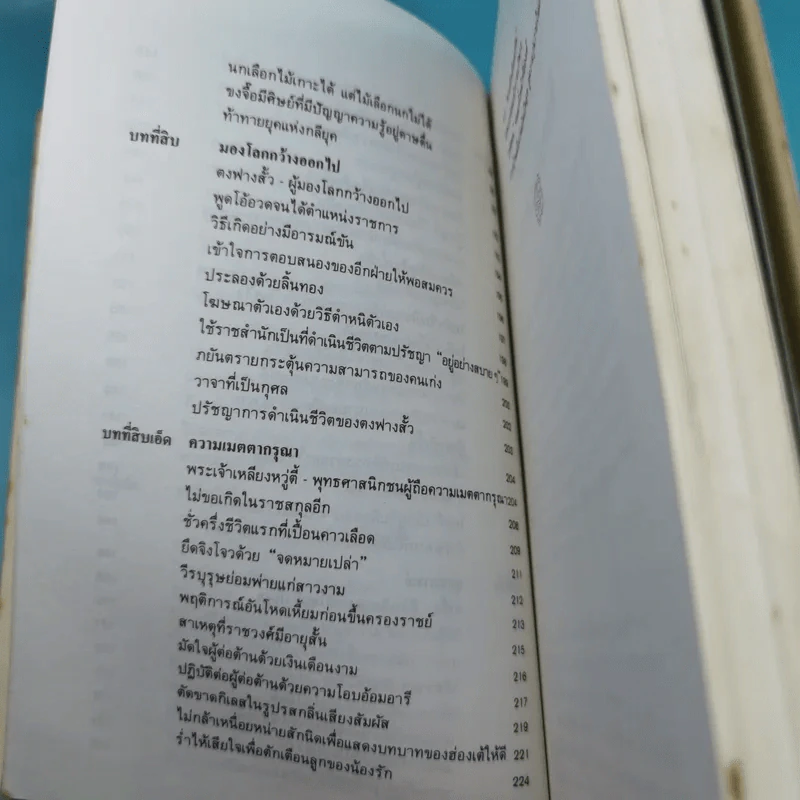 นกเลือกไม้เกาะได้ แต่ไม้เลือกนกไม่ได้
ขงจื๊อมีศิษย์ที่มีปัญญาความรู้อยู่ดาษดื่น
ท้าทายยุคแห่งกลียุค
บทที่สิบ มองโลกกว้างออกไป
ตงฟางสั้ว - ผู้มองโลกกว้างออกไป
พูดโอ้อวดจนได้ตำแหน่งราชการ
วิธีเกิดอย่างมีอารมณ์ขัน
เข้าใจการตอบสนองของอีกฝ่ายให้พอสมควร
ประลองด้วยลิ้นทอง
โฆษณาตัวเองด้วยวิธีตำหนิตัวเอง
ใช้ราชสำนักเป็นที่ดำเนินชีวิตตามปรัชญา "อยู่อย่างสบาย ๆ"
ภยันตรายกระตุ้นความสามารถของคนเก่ง 200
วาจาที่เป็นกุศล 202
ปรัชญาการดำเนินชีวิตของตงฟางสั้ว 203
บทที่สิบเอ็ด ความเมตตากรุณา 204
พระเจ้าเหลียงหวู่ตี้ - พุทธศาสนิกชนผู้ถือความเมตตากรุณา 204
ไม่ขอเกิดในราชสกุลอีก 208
ชั่วครึ่งชีวิตแรกที่เปื้อนคาวเลือด 209
ยึดจิงโจวด้วย "จดหมายเปล่า" 211
วีรบุรุษย่อมพ่ายแก่สาวงาม 212
พฤติการณ์อันโหดเหี้ยมก่อนขึ้นครองราชย์ 213
สาเหตุที่ราชวงศ์มีอายุสั้น 215
มัดใจผู้ต่อต้านด้วยเงินเดือนงาม 216
ปฏิบัติต่อผู้ต่อต้านด้วยความโอบอ้อมอารี 217
ตัดขาดกิเลสในรูปรสกลิ่นเสียงสัมผัส 219
ไม่กล้าเหนื่อยหน่ายสักนิดเพื่อแสดงบทบาทของฮ่องเต้ให้ดี 221
ร่ำไห้เสียใจเพื่อตักเตือนลูกของน้องรัก 224